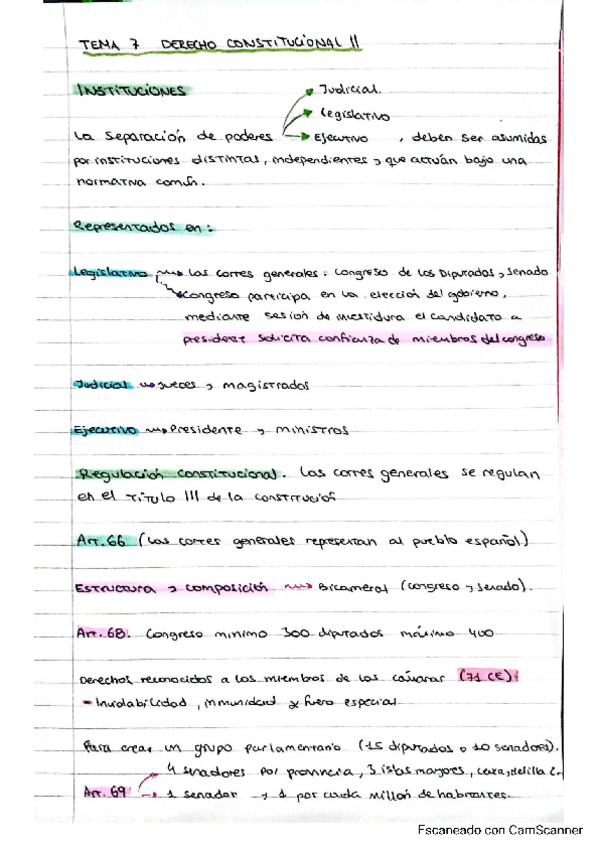 TEMA 7 DERECHO CONSTITUCIONAL II
INSTITUCIONES
Judicial.
Legislativo
La separación de poderes Ejecutivo, deben ser asumidas
por instituciones distintas, independientes y que actúan bajo una
normativa común.
Representados en:
Legislativo Las cortes generales: Congreso de los Diputados y Senado
Congreso participa en la elección del gobierno,
mediante sesión de investidura el candidato a
presidente solicita confianza de miembros del congreso
Judicial jueces y magistrados
Ejecutivo Presidente y ministros
Regulación constitucional. Las cortes generales se regulan
en el Título III de la constitución
Art. 66 (Las cortes generales representan al pueblo español)
Estructura y composición Bicameral (congreso y senado).
Art. 68. Congreso minimo 300 diputados máximo 400
Derechos reconocidos a los miembros de las cámaras (71 CE):
- Inviolabilidad, inmunidad y fuero especial
Para crear un grupo parlamentario (15 diputados o 10 senadores).
4 senadores por provincia, 3 islas mayores, ceuta, melilla 2.
Art. 69 1 senador y 1 por cada millon de habitantes.
Escaneado con CamScanner